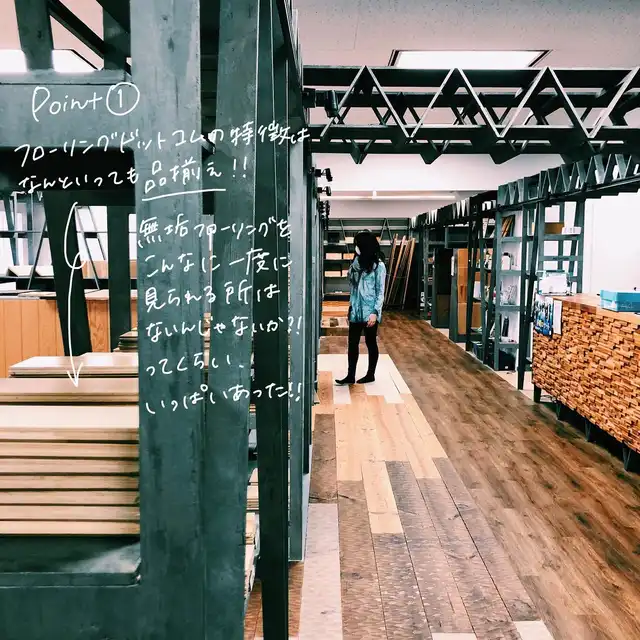 Point①
フローリングドットコムの特徴は
なんといっても品揃え!!
無垢フローリングを
こんなに一度に
見られる所は
ないんじゃないか?!
ってくらい、
いっぱいあった!!